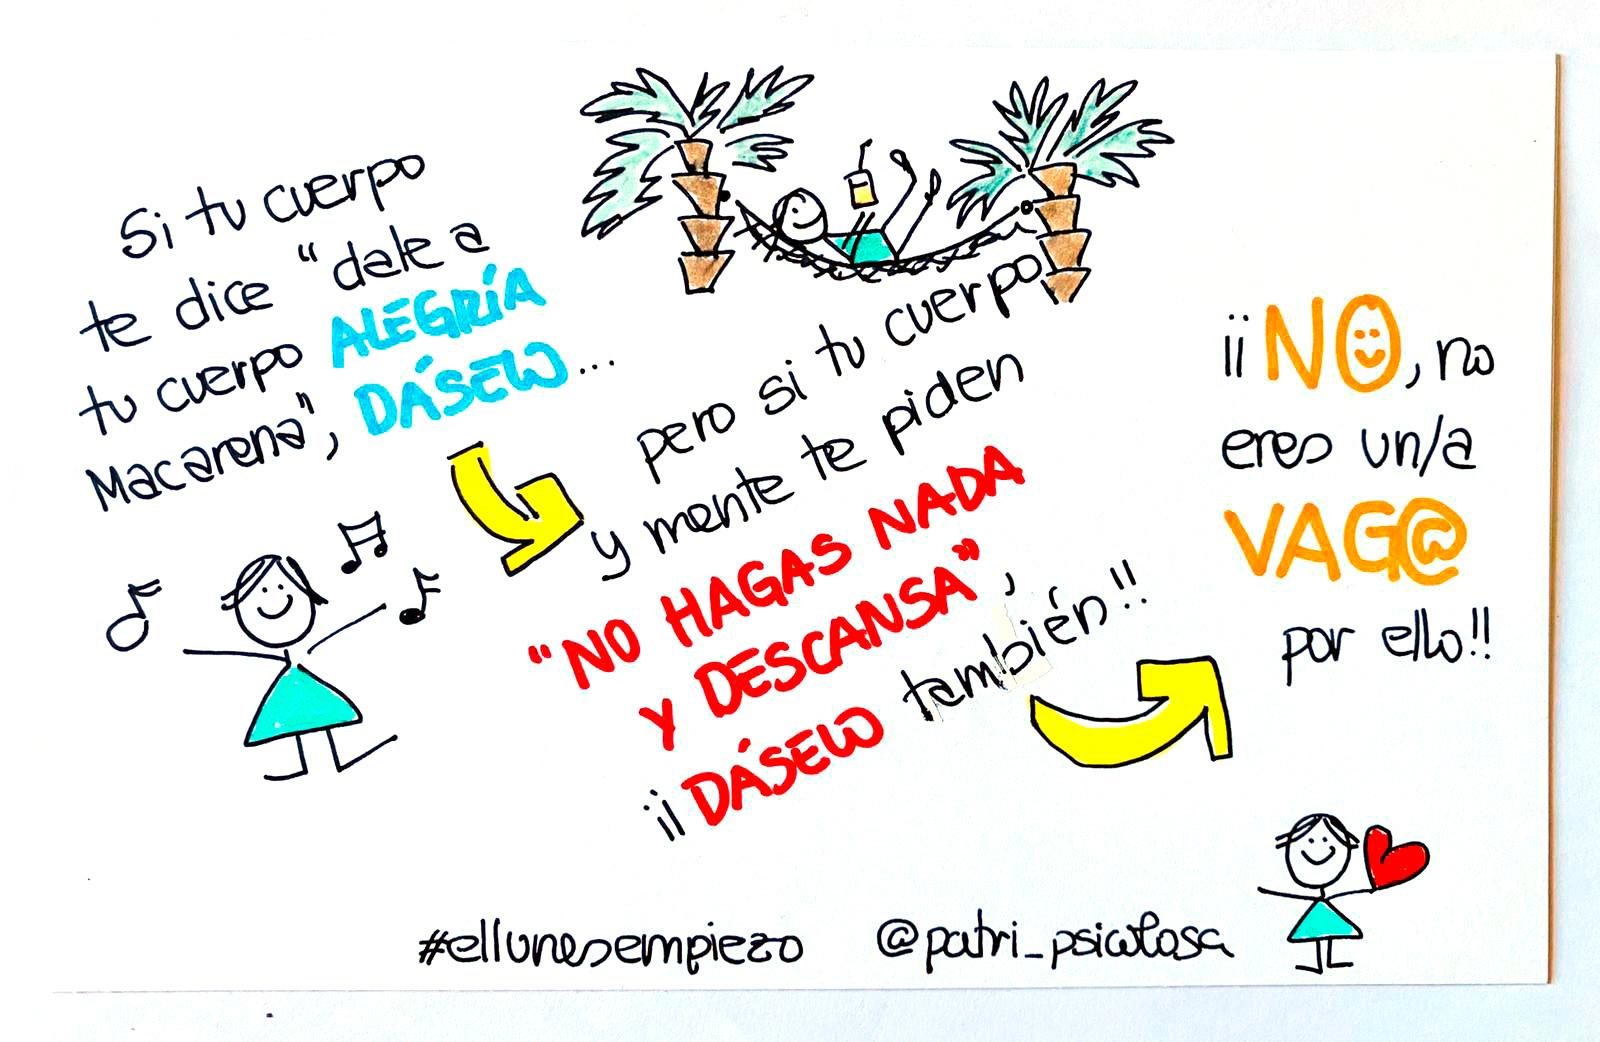 Si tu cuerpo
te dice "dale a
tu cuerpo ALEGRÍA
Macarena", DÁSELO...
pero si tu cuerpo
y mente te piden
"NO HAGAS NADA
Y DESCANSA",
¡¡DÁSELO también!!
¡¡NO, no
eres un/a
VAG@
por ello!!
#ellunesempiezo
@patri_psicolosa